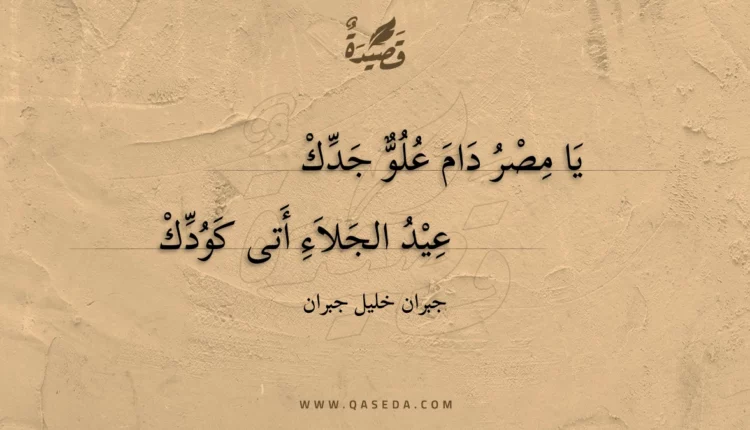 قَصِيْدَةٌ
يَا مِصْرُ دَامَ عُلُوُّ جَدِّكْ
عِيْدُ الجَلاَءِ أَتى كَوُدِّكْ
جبران خليل جبران
WWW.QASEDA.COM